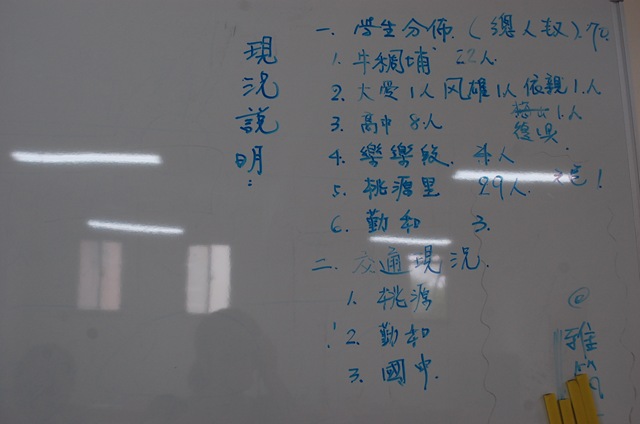 現況說明:
一. 學生分佈.(總人数).70.
1. 牛稠埔 22人.
2. 大愛1人 风雄1人 依親1.人
1.人
3. 高中 8人
4. 樂樂段. 4人
5. 桃源里 29人.
6. 勤和 3.
二. 交通現況.
1. 桃源
2. 勤和
3. 國中.
@